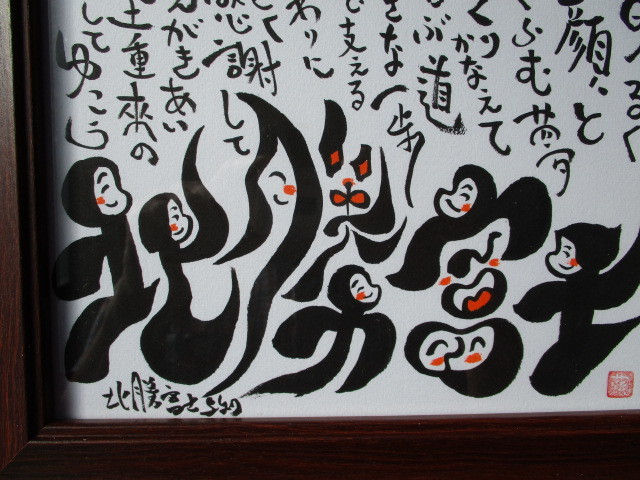 るく
顔ゝと
くらむ夢
くりかなえて
なぶ道
きな一歩
で支える
わりに
感謝して
がきあい
土重來の
してゆこう
北勝富士
北勝富士